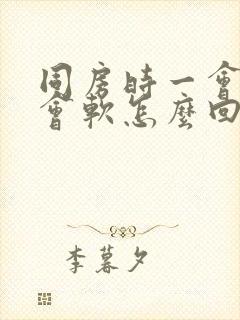 同房時一會
會軟怎麼回
李暮夕